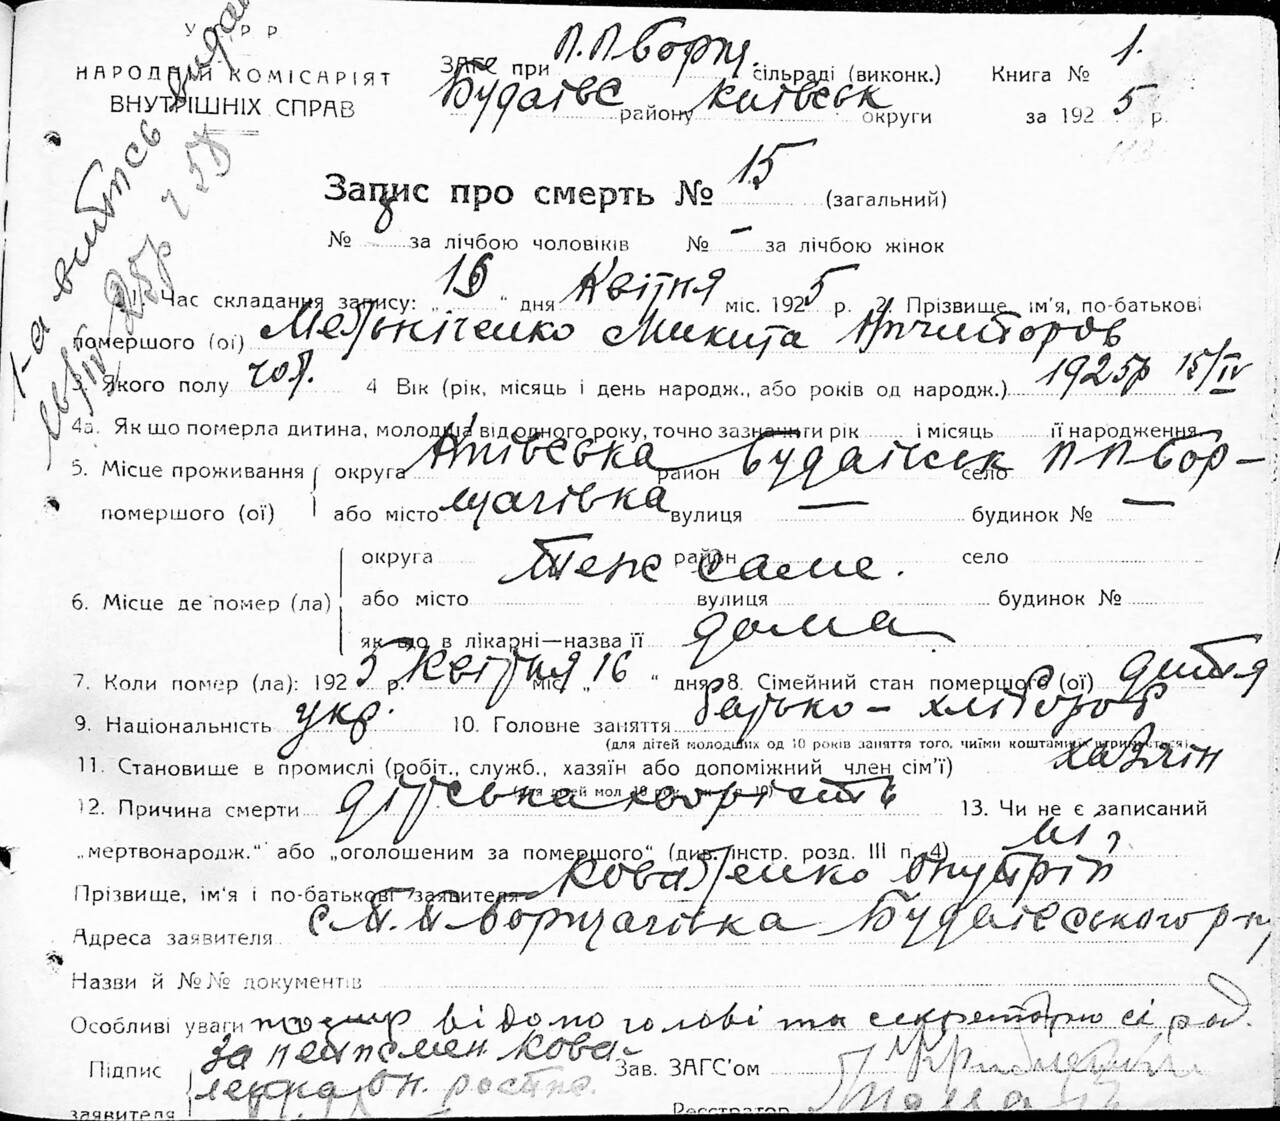 У С Р Р
НАРОДНІЙ КОМІСАРІЯТ
ВНУТРІШНІХ СПРАВ
ЗАГС при П.П Борщ. сільраді (виконк.)
Будаївс району Київськ округи
Книга № 1.
за 1925 р.
1-а витись видан
Запис про смерть № 15 (загальний)
№ 8 за лічбою чоловіків № - за лічбою жінок
1. Час складання запису: „16" дня Квітня міс. 1925 р. 2. Прізвище, ім'я, по-батькові
помершого (ої) Мельніченко Микита
3. Якого полу чол. 4 Вік (рік, місяць і день народж., або років од народж.) 1925р 15/IV
4а. Як що померла дитина, молодша від одного року, точно зазначити рік і місяць її народження
5. Місце проживання помершого (ої) округа Київська район Будаївськ село П П Бор-
або місто щагівка вулиця — будинок № —
6. Місце де помер (ла) округа район село Теж саме.
або місто вулиця будинок №
як що в лікарні—назва її дома
7. Коли помер (ла): 1925 р. Квітня міс. „16" дня 8. Сімейний стан помершого (ої) дитя
9. Національність укр. 10. Головне заняття батько - хлібороб
(для дітей молодших од 10 років заняття того, чиїми коштами їх утримується)
11. Становище в промислі (робіт., служб., хазяїн або допоміжний член сім'ї) хазяїн
12. Причина смерти дітська хворість 13. Чи не є записаний
„мертвонародж." або „оголошеним за помершого" (див. інстр. розд. III п. 4) ні
Прізвище, ім'я і по-батькові заявителя Коваленко Онупрій
Адреса заявителя с П. П Борщагівка Будаївського р-ну
Назви й №№ документів
Особливі уваги відомо голові та секретарю сілрад.
Підпис заявителя за неписмен. Кова-
ленка Он. роспис.
Зав. ЗАГС'ом
Реєстратор